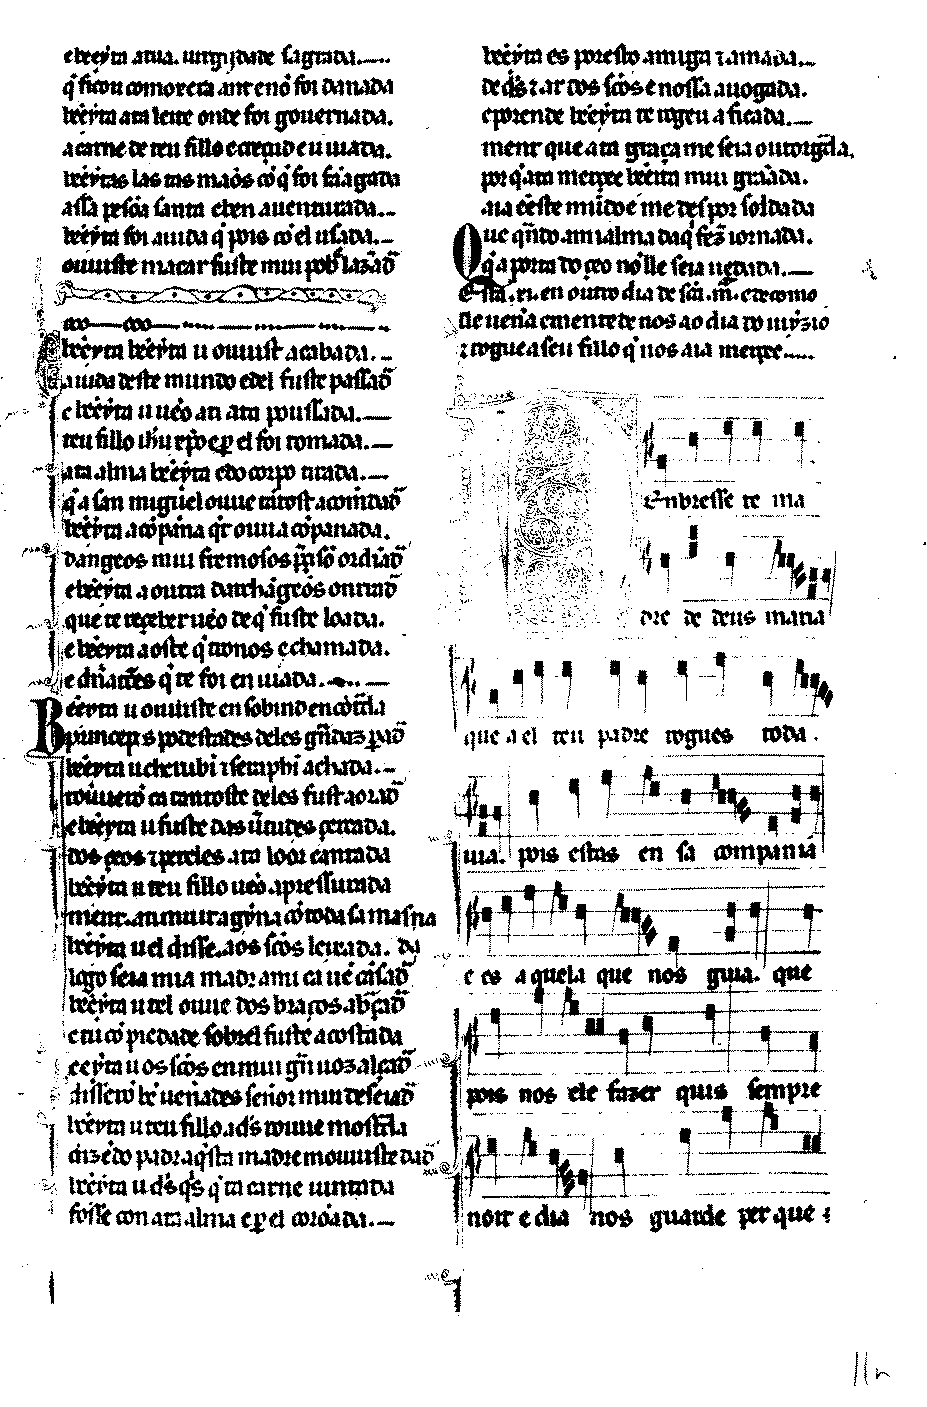 e beeyta a tua uirgijdade sagrada.
q̇ ficou como xera ant e nõ foi danada
bẽeyta a ta leite onde foi gouernada.
a carne de teu fillo e creçud e uiuada.
bẽeytas las tas mãos cõ q̇ foi faagada
a ssa pesõa santa e ben auenturada.
bẽeyta foi a uida q̇ pois cõ el usada.
ouuiste macar fuste mui pobr lazdã
bẽeyta bẽeyta u ouuist acabada.
a uida deste mundo e del fuste passad
e bẽeyta u uẽo an ata poussada.
teu fillo ih̃u xp̃o e per el foi tomada.
a ta alma bẽeyta e do corpo tirada.
q̇ a san miguel ouue tãtost acomẽdad
bẽeyta a cõpãna q̇ t ouui acõpanada.
dangeos mui fremosos
e bẽeyta a outra darchãgeos onrrad
que te reçeber uẽo de q̇ fuste loada.
e bẽeyta a oste q̇ tronos e chamada.
e dñaçoẽs q̇ te foi enuiada.
Bẽeyta u ouuiste en sobind encõtrada
principes podestades deles
bẽeyta u cherubĩ τ seraphĩ achada.
ca tantoste deles fust aorad
e bẽeyta u fuste das uirtudes çercada.
dos çeos τ per eles a ta loor cantada
bẽeyta u teu fillo uẽo apressurada
ment.
bẽeyta u el disse aos sc̃os leixada.
logo seia mia madr a mi ca uẽ cãsad
bẽeyta u t el ouue dos braços abraçad
e tu cõ piedade sobr el fuste acostada
bẽeyta u os sc̃os en mui gñ uoz alçad
disserõ bẽ uenades sennor mui deseiad
bẽeyta u teu fillo a ds̃ t ouue mostrada
dizẽdo padr aq̇sta madre m ouuiste dad
bẽeyta u ds̃ q̇s q̇ ta carne iuntada
fosse con a ta alma e per el corõada.
bẽeyta es por esto amiga τ amada.
de ds̃ τ ar dos sc̃os e nossa auogada.
e por ende bẽeyta te rogeu aficada.
ment que a ta graça me seia outorgada.
por q̇ a ta merçee bẽeita mui graada.
aia ẽ este mũdo e me des por soldada
Que q̃ndo a mi alma daq̇ fez̃ iornada.
q̇ a porta do çeo nõ lle seia negada.
Esta .xi. en outro dia de scã .m̃. e de como
lle uenna ementede nos ao dia do iuyzio
τ rogue a seu fillo q̇ nos aia merçee.
Enbresse te ma
dre de deus maria
que a el teu padre rogues toda.
uia. pois estas en sa compania
e es aquela que nos guia. que
pois nos ele fazer quis sempre
noit e dia nos guarde per que
11r